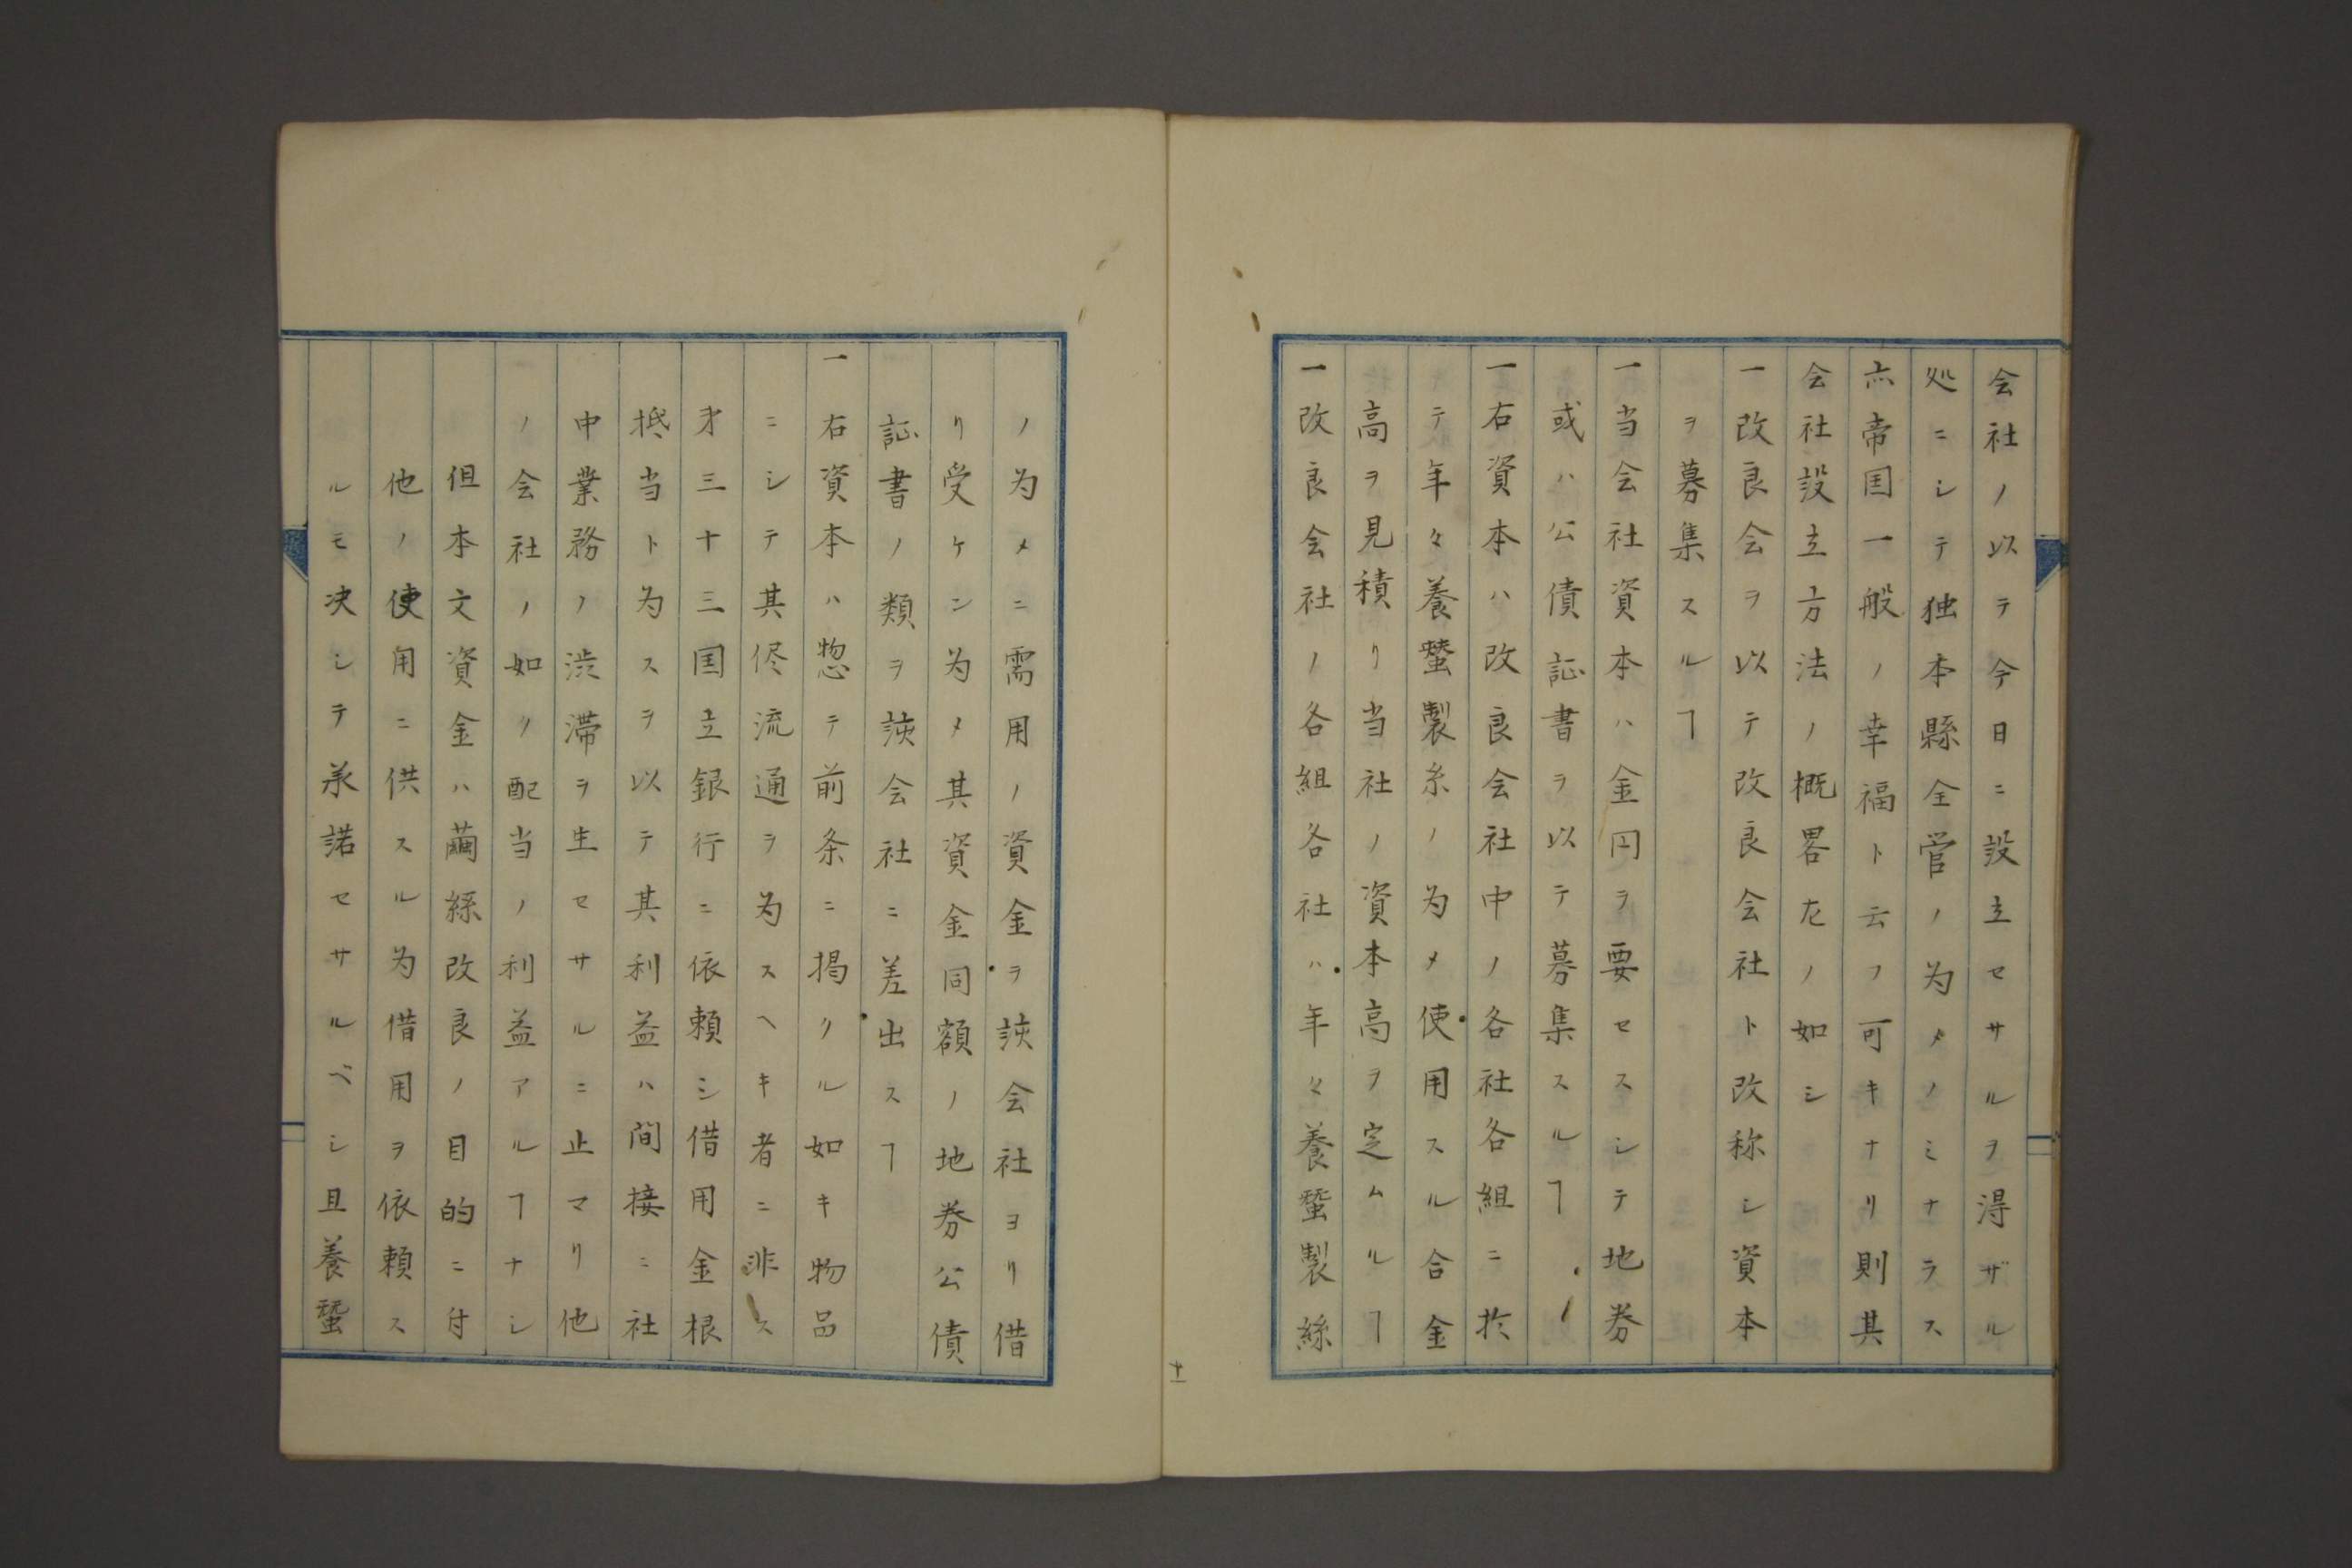 会社ノ以テ今日ニ設立セサルヲ得ザル
処ニシテ独本縣全管ノ為メノミナラス
亦帝国一般ノ幸福ト云フ可キナリ則其
会社設立方法ノ概畧左ノ如シ
一改良会ヲ以テ改良会社ト改称シ資本
ヲ募集スルヿ
一当会社資本ハ金円ヲ要セスシテ地券
或ハ公債証書ヲ以テ募集スルヿ
一右資本ハ改良会社中ノ各社各組ニ於
テ年々養蚕製糸ノ為メ使用スル合金
高ヲ見積リ当社ノ資本高ヲ定ムルヿ
一改良会社ノ各組各社ハ年々養蚕製絲
ノ為メニ需用ノ資金ヲ該会社ヨリ借
リ受ケン為メ其資金同額ノ地券公債
証書ノ類ヲ該会社ニ差出スヿ
一右資本ハ惣テ前条ニ掲クル如キ物品
ニシテ其侭流通ヲ為スヘキ者ニ非ス
才三十三国立銀行ニ依頼シ借用金根
抵当ト為スヲ以テ其利益ハ間接ニ社
中業務ノ渋滞ヲ生セサルニ止マリ他
ノ会社ノ如ク配当ノ利益アルヿナシ
但本文資金ハ繭絲改良ノ目的ニ付
他ノ使用ニ供スル為借用ヲ依頼ス
ルモ决シテ承諾セサルベシ且養蚕
十一